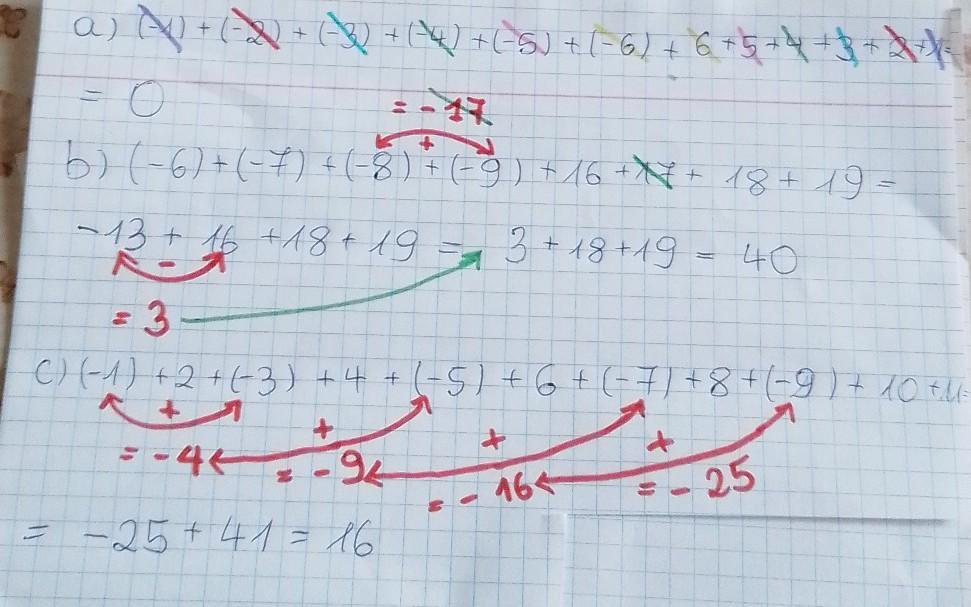 a) (-1) + (-2) + (-3) + (-4) + (-5) + (-6) + 6 + 5 + 4 + 3 + 2 + 1 =
= 0
= - 17
+
b) (-6) + (-7) + (-8) + (-9) + 16 + 17 + 18 + 19 =
-13 + 16 + 18 + 19 = 3 + 18 + 19 = 40
-
= 3
c) (-1) + 2 + (-3) + 4 + (-5) + 6 + (-7) + 8 + (-9) + 10 + 11 =
+ + + +
= -4 = -9 = -16 = -25
= -25 + 41 = 16